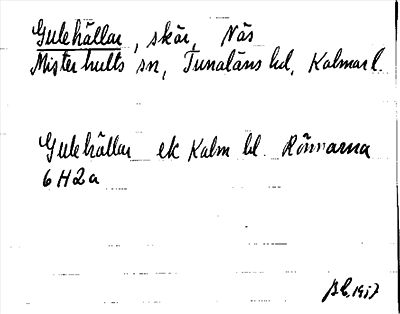 Gulehällar, skär, Näs
Misterhults sn, Tunaläns hd, Kalmar l.
Gulehällar ek Kalm bl. Rönnarna
6 H 2 a